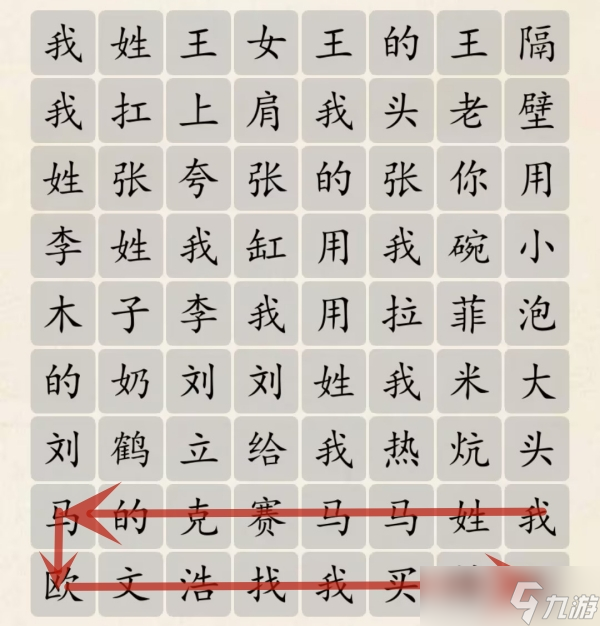 我姓王女王的王隔
我扛上肩我头老壁
姓张夸张的张你用
李姓我缸用我碗小
木子李我用拉菲泡
的奶刘刘姓我米大
刘鹤立给我热炕头
马的克赛马马姓我
欧文浩找我买
九游